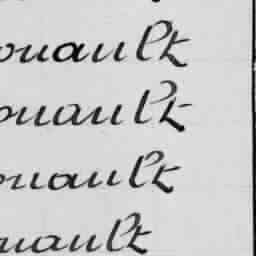 ouault
ouault
ouault
uault